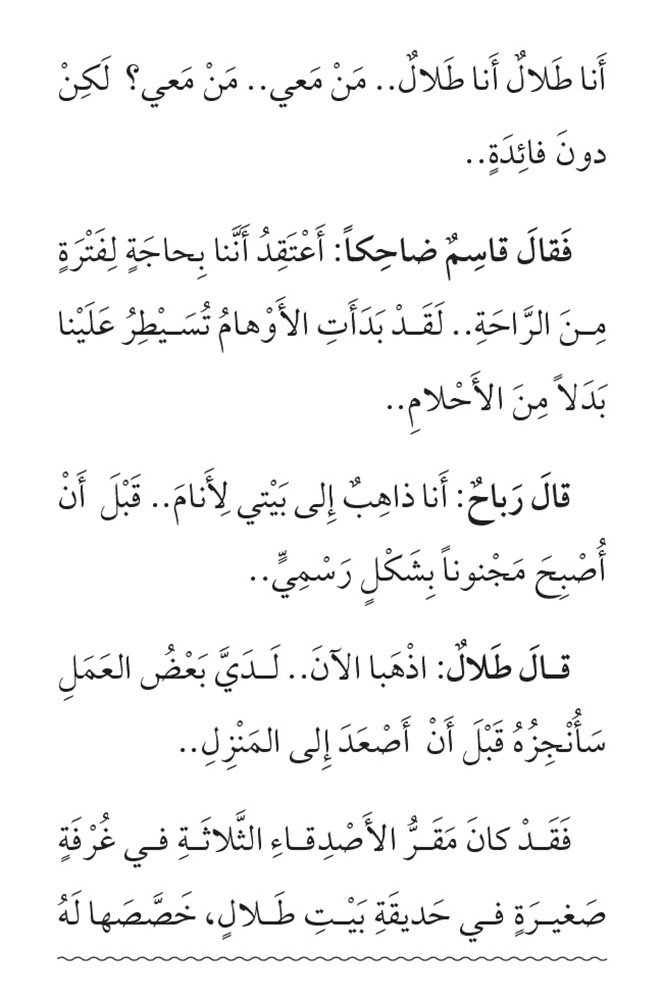 أَنا طَلالٌ أَنا طَلالٌ.. مَنْ مَعي.. مَنْ مَعي؟ لَكِنْ
دونَ فائِدَةٍ..
فَقالَ قاسِمٌ ضاحِكاً: أَعْتَقِدُ أَنَّنا بِحاجَةٍ لِفَتْرَةٍ
مِـنَ الرَّاحَةِ.. لَقَـدْ بَدَأَتِ الأَوْهامُ تُسَـيْطِرُ عَلَيْنا
بَدَلاً مِنَ الأَحْلامِ..
قالَ رَباحٌ: أَنا ذاهِبٌ إِلى بَيْتي لِأَنامَ.. قَبْلَ أَنْ
أُصْبِحَ مَجْنوناً بِشَكْلٍ رَسْمِيٍّ..
قـالَ طَلالٌ: اذْهَبا الآنَ.. لَـدَيَّ بَعْضُ العَمَلِ
سَأُنْجِزُهُ قَبْلَ أَنْ أَصْعَدَ إِلى المَنْزِلِ..
فَقَـدْ كانَ مَقَـرُّ الأَصْدِقـاءِ الثَّلاثَـةِ فـي غُرْفَةٍ
صَغيـرَةٍ فـي حَديقَةِ بَيْـتِ طَـلالٍ، خَصَّصَها لَهُ